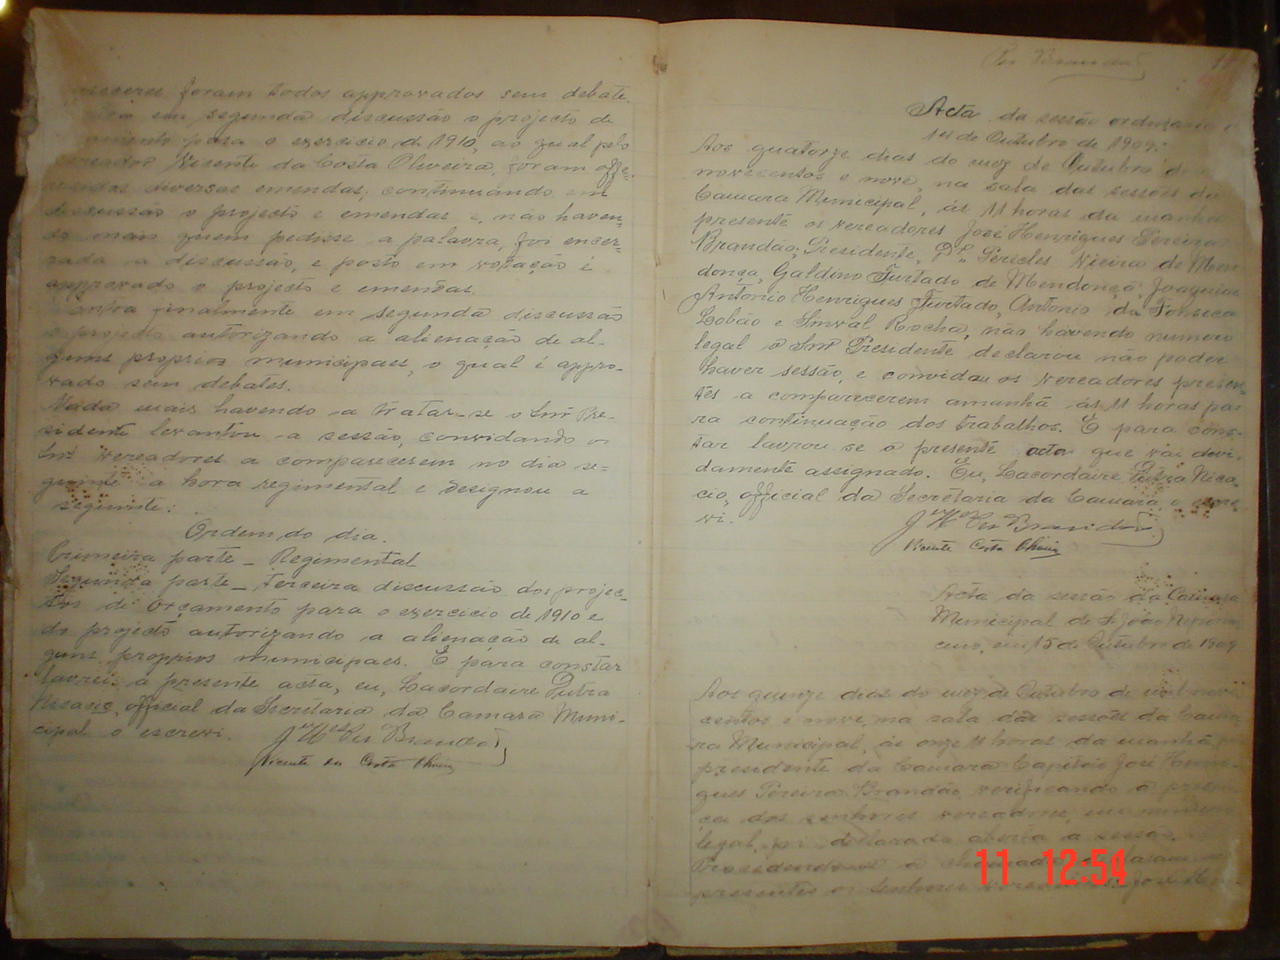 foram todos approvados sem debate.
em segunda discussão o projecto de
para o exercicio de 1910, ao qual pelo
Vicente da Costa Oliveira, foram offe-
diversas emendas; continuando em
discussão o projecto e emendas e, não haven-
do mais quem pedisse a palavra, foi encer-
rada a discussão, e posto em votação é
approvado o projecto e emendas.
Entra finalmente em segunda discussão
o projecto autorizando a alienação de al-
guns proprios municipaes, o qual é appro-
vado sem debates.
Nada mais havendo a tratar-se o Snr. Pre-
sidente levantou a sessão, convidando os
Snrs. Vereadores a comparecerem no dia se-
guinte a hora regimental e designou a
seguinte:
Ordem do dia.
Primeira parte - Regimental
Segunda parte - Terceira discussão dos projec-
tos de Orçamento para o exercicio de 1910 e
do projecto autorizando a alienação de al-
guns proprios municipaes. E para constar
lavrei a presente acta, eu, Lacordaire Dutra
official da Secretaria da Camara Muni-
cipal o escrevi. Brandão
Vicente da Costa Oliveira
Per Brandão
Acta da sessão ordinaria
14 de Outubro de 1909.
Aos quatorze dias do mez de Outubro de
novecentos e nove, na sala das sessões da
Camara Municipal, ás 11 horas da manhã
presente os vereadores José Henriques Pereira
Brandão, Presidente, Dr. Pericles Vieira de Men-
donça, Galdino Furtado de Mendonça, Joaquim
Antonio Henriques Furtado, Antonio da Fonseca
Lobão e Rocha, não havendo numero
legal o Snr. Presidente declarou não poder
haver sessão, e convidou os vereadores presen-
tes a comparecerem amanhã ás 11 horas pa-
ra continuação dos trabalhos. E para cons-
tar lavrou se a presente acta que vai devi-
damente assignado. Eu, Lacordaire Dutra
official da Secretaria da Camara o escre-
vi.
Brandão
Vicente Costa Oliveira
Acta da sessão da Camara
Municipal de S. João Nepomu-
ceno, em 15 de Outubro de 1909
Aos quinze dias do mez de Outubro de mil nove-
centos e nove, na sala das sessões da Cama-
ra Municipal, ás onze 11 horas da manhã
presidente da Camara Capitão José Henri-
ques Pereira Brandão, verificando a presen-
ça dos senhores vereadores, em numero
legal, foi declarada aberta a sessão.
Procedendo-se a chamada
presentes os senhores vereadores José Hen-
11 12:54